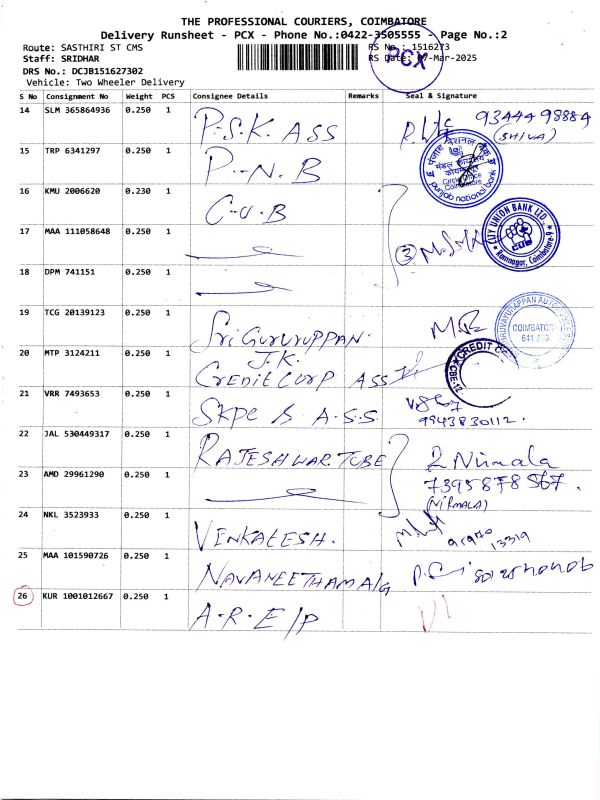 THE PROFESSIONAL COURIERS, COIMBATORE
Delivery Runsheet - PCX - Phone No.:0422-3505555 - Page No.:2
Route: SASTHIRI ST CMS
RS No.: 1516273
Staff: SRIDHAR
RS Date: 7-Mar-2025
PCX
DRS No.: DCJB151627302
Vehicle: Two Wheeler Delivery
S No Consignment No Weight PCS Consignee Details Remarks Seal & Signature
14 SLM 365864936 0.250 1 P.S.K. ASS 9344498884
(SHIVA)
15 TRP 6341297 0.250 1 P-N.B
punjab national bank
16 KMU 2006620 0.230 1 C-U-B
CITY UNION BANK LTD.
CUB
Ramnagar, Coimbatore-9
17 MAA 111058648 0.250 1 3
18 DPM 741151 0.250 1
19 TCG 20139123 0.250 1 Sri GURURUPPAN.
COIMBATORE
20 MTP 3124211 0.250 1 J.K.
CREDIT CORP ASS
CREDIT
21 VRR 7493653 0.250 1 SKPC & A.S.S
9943830112.
22 JAL 530449317 0.250 1 RAJESHWAR.TUBE R Nirmala
7395878567.
(NIRMALA)
23 AMD 29961290 0.250 1
24 NKL 3523933 0.250 1 VENKATESH.
25 MAA 101590726 0.250 1 NAVANEETHAM A/G
26 KUR 1001012667 0.250 1 A.R.E/P